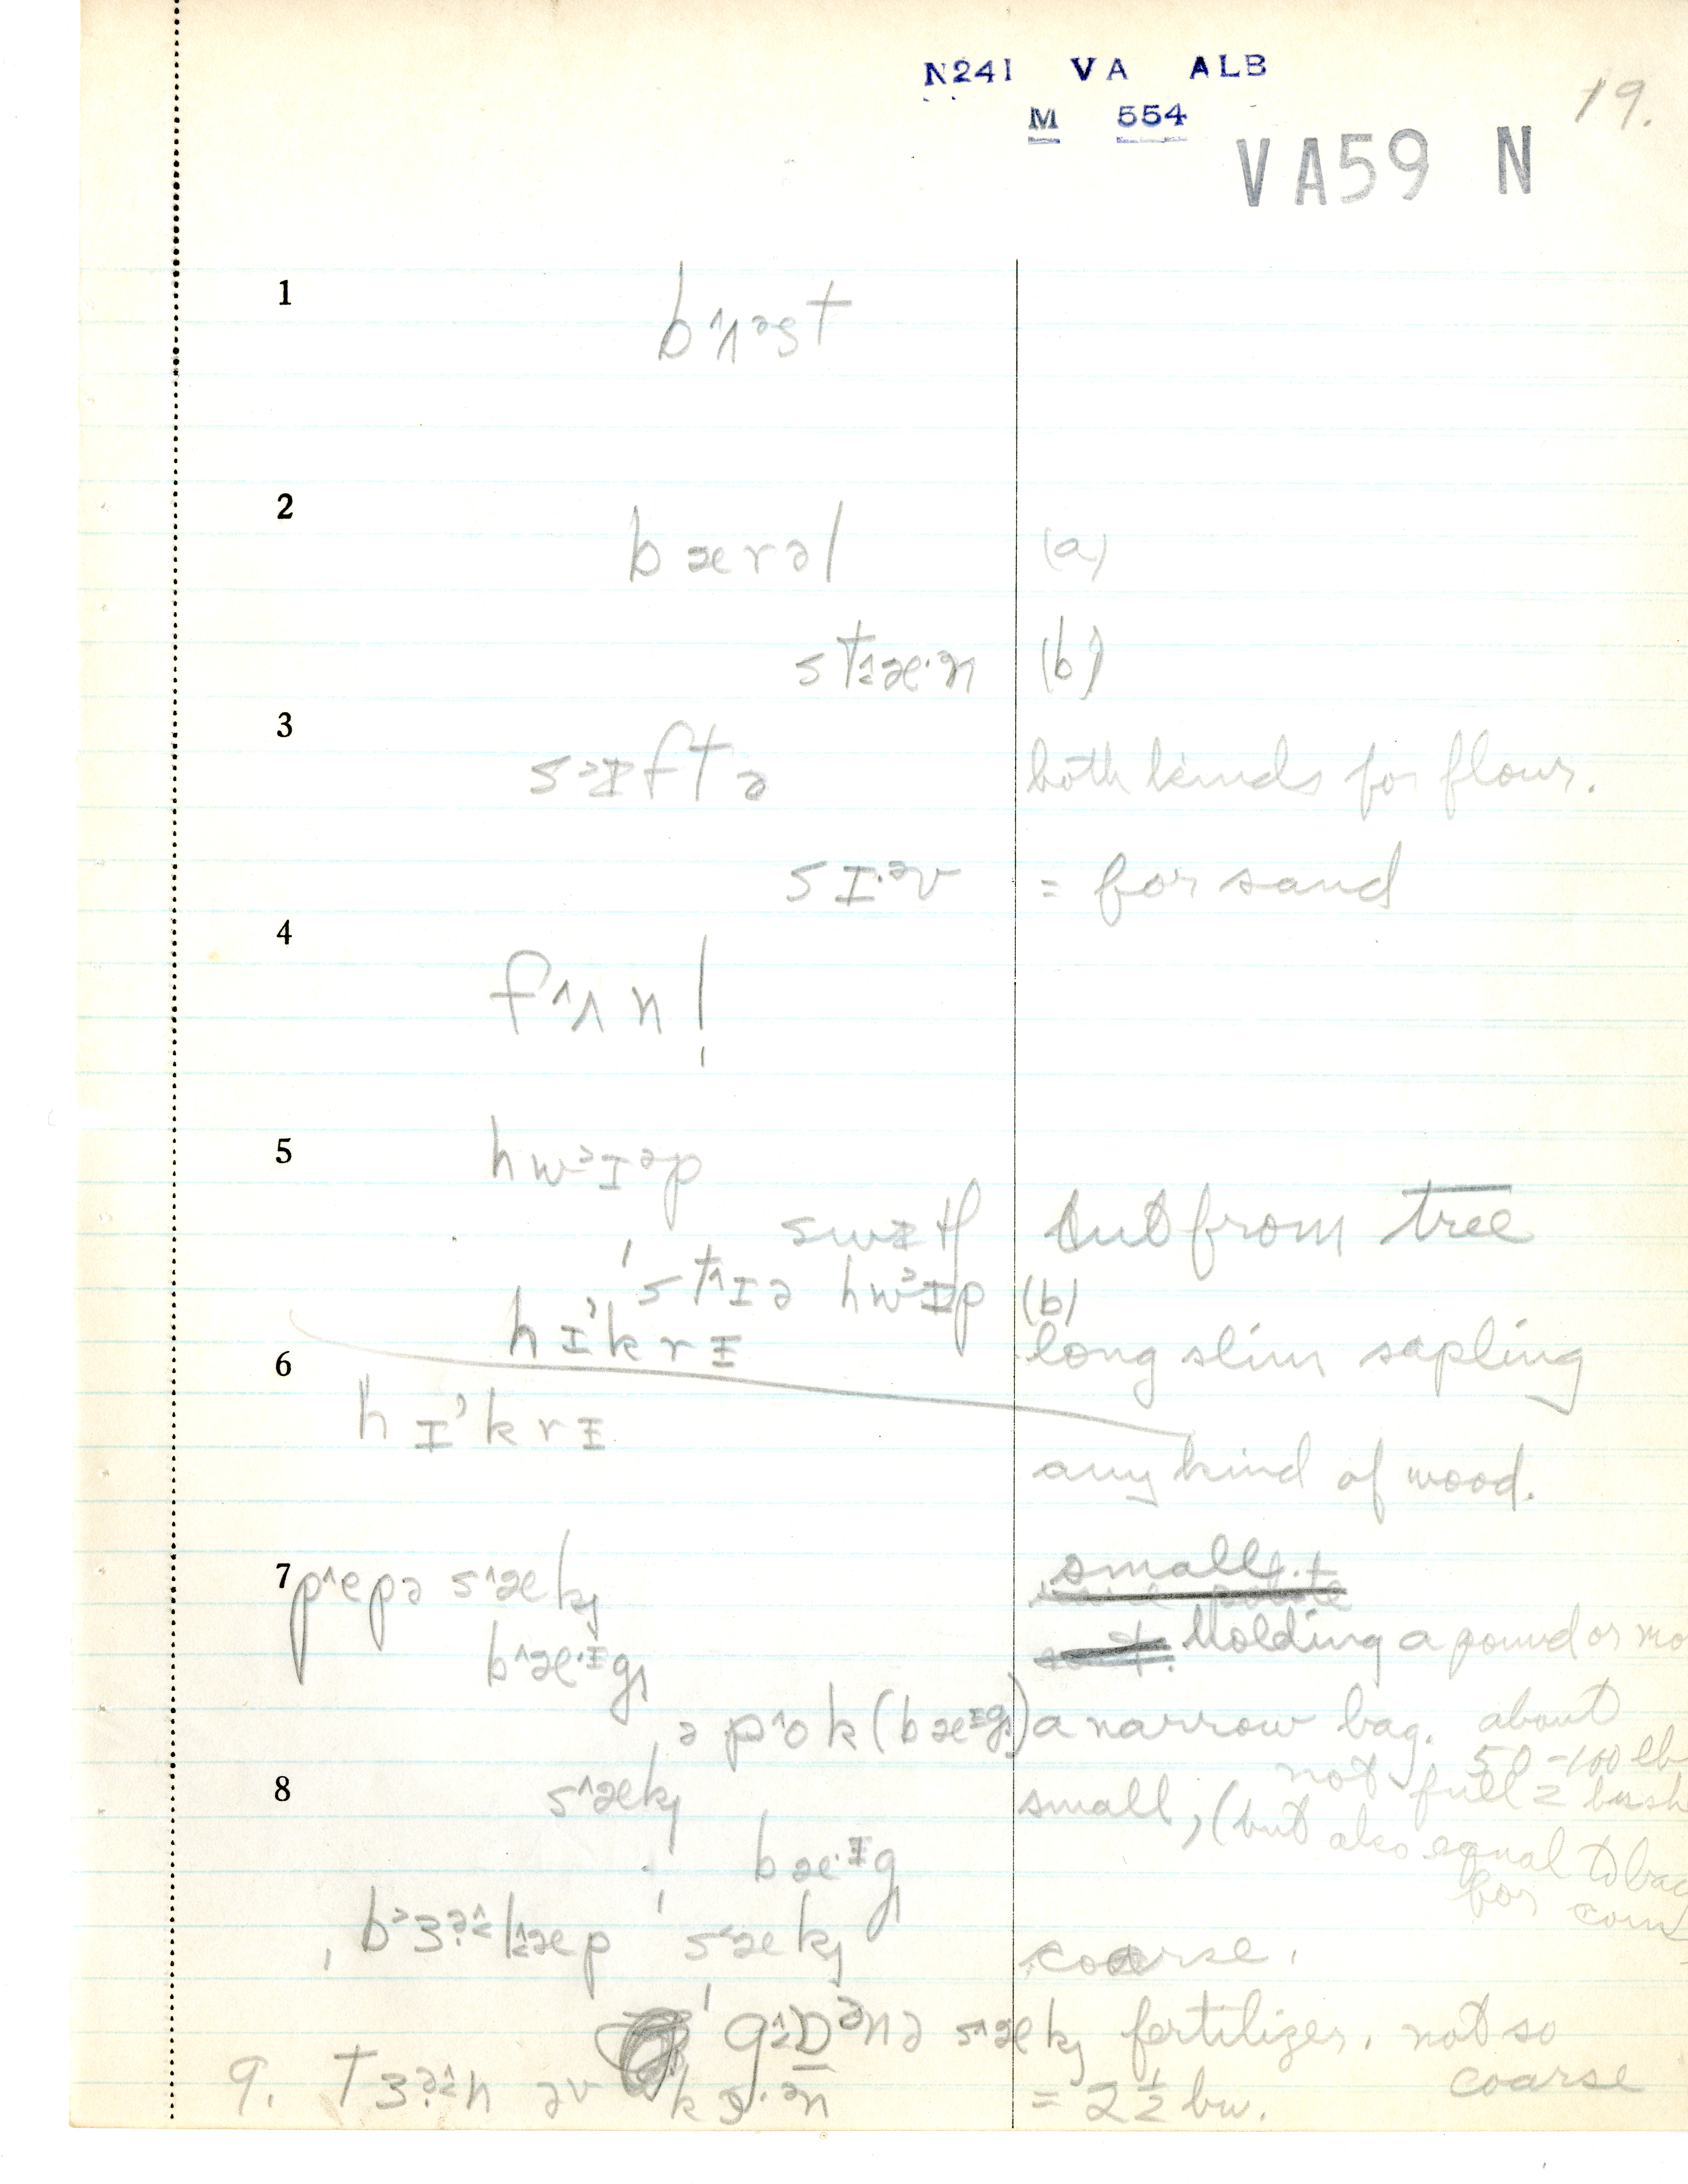 N241 VA ALB
M 554
19.
VA59 N
1
bʌəst
2
bærəl (a)
stæ·ən (b)
3
sɪftə both kinds for flour.
sɪ·əv = for sand
4
fʌnl̩
5
hwɪəp
swɪtʃ cut from tree
'stɪə hwɪp (b)
hɪ'krɪ long slim sapling
6
hɪ'krɪ
any kind of wood.
7 pepə sæk small
bæ·ɪg Holding a pound or mo
ə pok (bæɪg) a narrow bag. about
50-100 lb
not full = bush
8 sæk small, (but also equal to bag
for
bæ·ɪg
bɜləp 'sæk coarse.
'gɒənə sæk fertilizer. not so
coarse
9. tɜn əv kɔ·ən = 2½ bu.